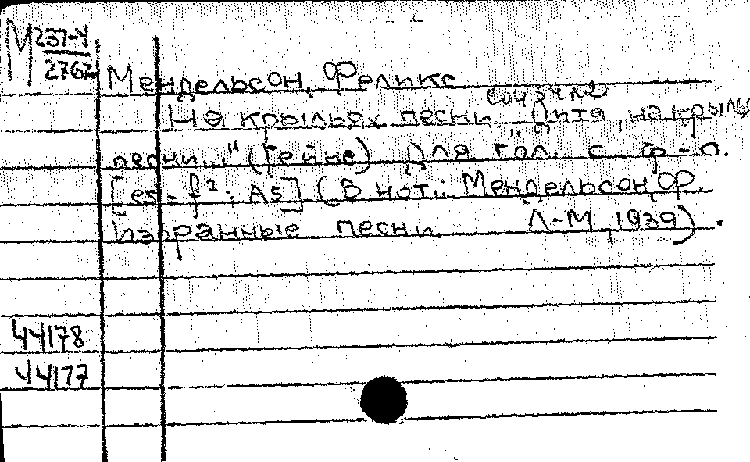 М 237-4
2762
Мендельсон, Феликс
На крыльях песни соч 34 №2
"Дитя, на крыльях
песни..." (Гейне) Для гол. с ф-п.
[es - f²; As] (В нот.: Мендельсон, Ф.
Избранные песни Л-М, 1939).
44178
44177